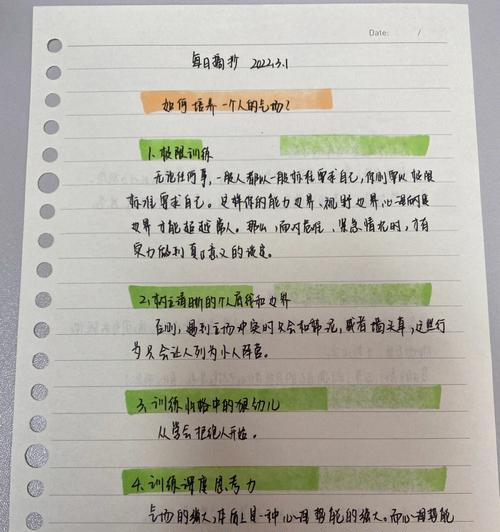 Date: /
每日摘抄 2022.3.1
如何培养一个人的气场?
1. 极限训练
无论任何事,一般人都以一般标准要求自己,你则要以极限
标准要求自己。这样你的能力边界、视野边界、心理耐受
边界才能超越常人。那么,面对危难、紧急情况时,才有
实力做到真正意义的淡定。
2. 树立清晰的个人底线和边界
否则,遇到立场冲突时只会和稀泥,或者墙头草,这些行
为只会让人列为小人阵营。
3. 训练性格中的狠劲儿
从学会拒绝人开始。
4. 训练深度思考力
气场的强大,本质上是一种心理势能的强大。而心理势能